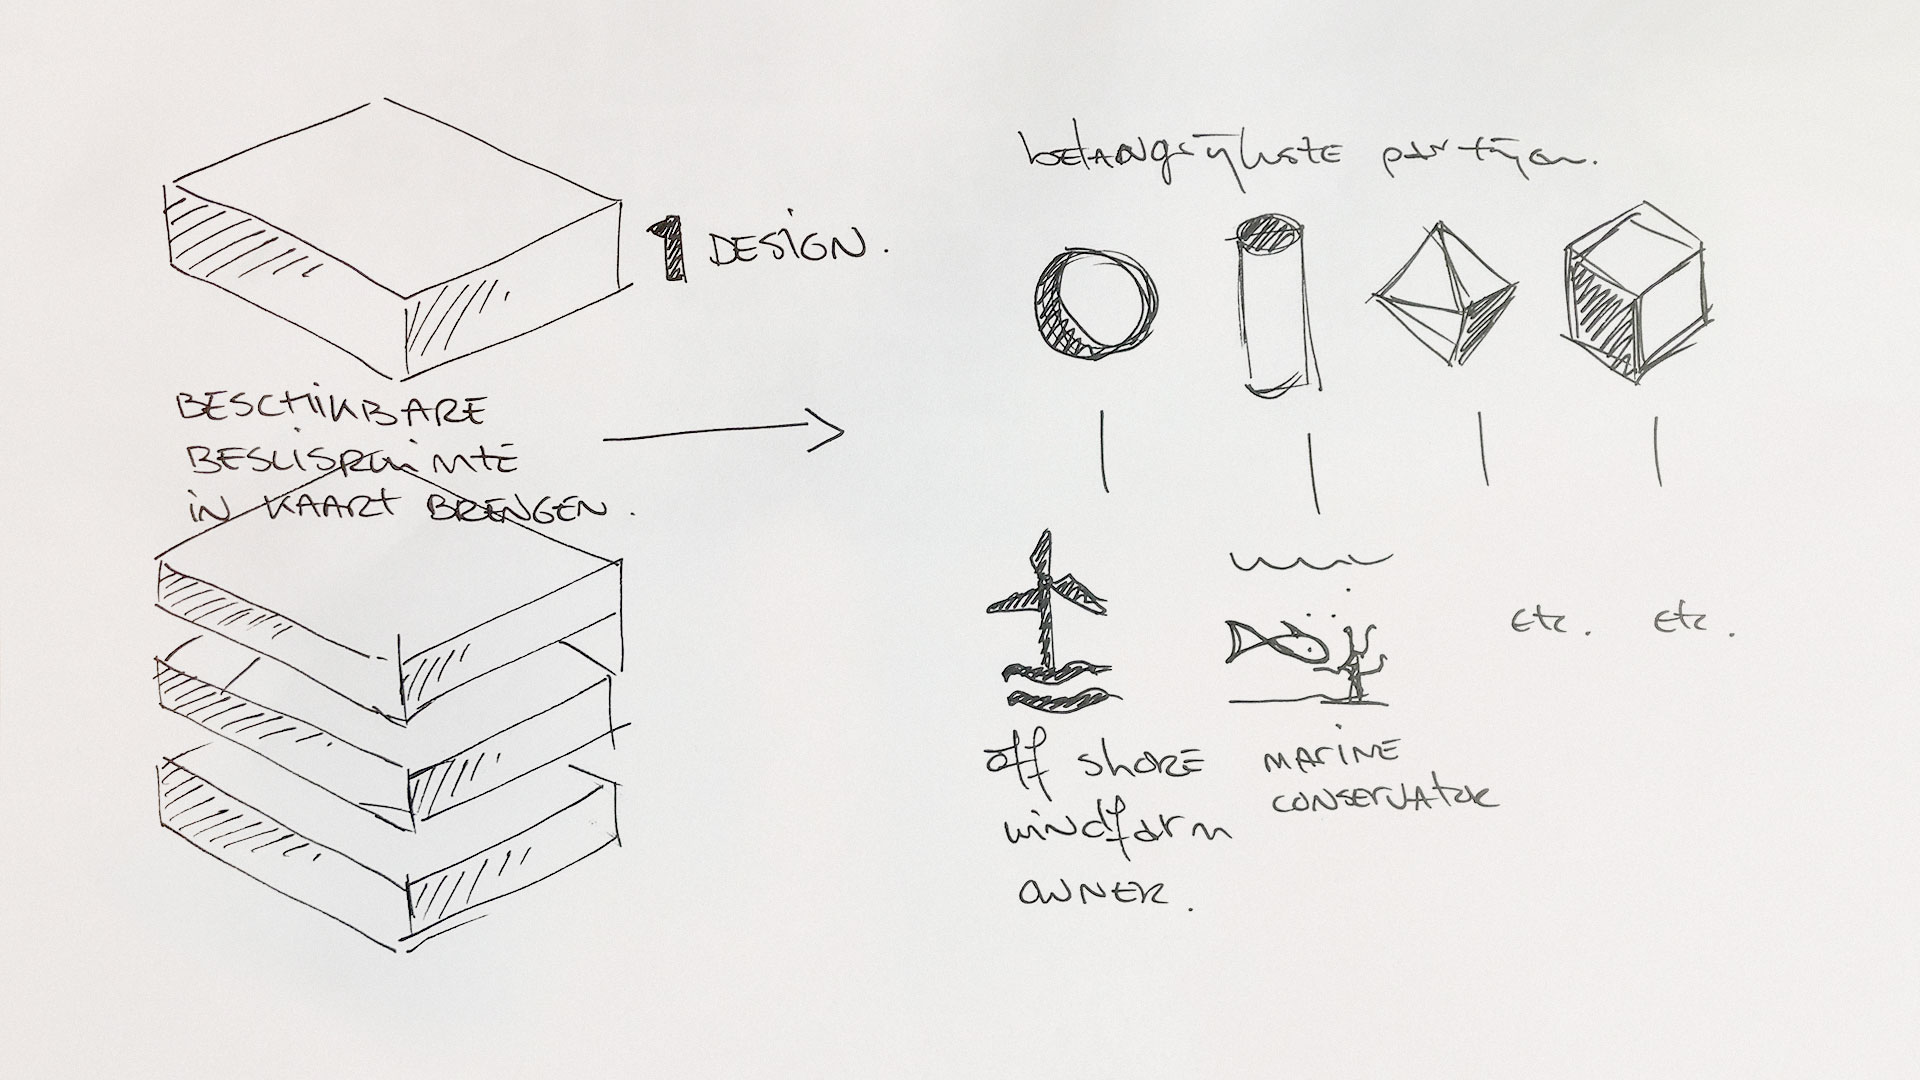 1 DESIGN.
BESCHIKBARE
BESLISRUIMTE
IN KAART BRENGEN.
belangrijkste partijen.
etc. etc.
off shore
windfarm
OWNER.
MARINE
CONSERVATOR